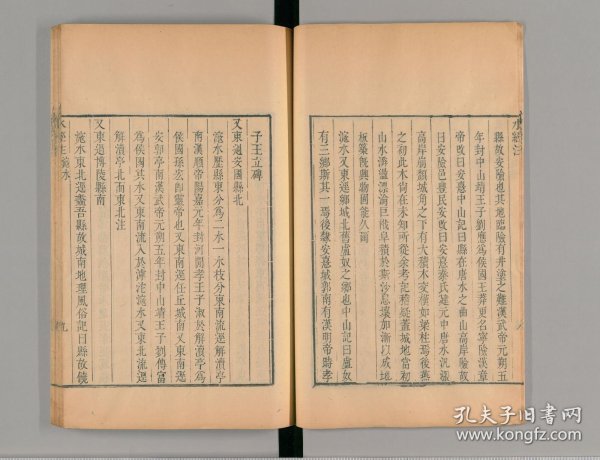 水經注
縣故安險也其地臨險有井塗之難漢武帝元朔五
年封中山靖王子劉應爲侯國王莽更名寧險漢章
帝改曰安憙中山記曰縣在唐水之曲山高岸險故
曰安險邑豐民安改曰安憙秦氏建元中唐水汎漲
高岸崩頹城角之下有大積木交橫如梁柱焉後燕
之初此木尚在未知所從余考記稽疑蓋城地當初
山水渀盪漂淪巨栰阜積於斯沙息壤加漸以成地
板築旣興物固能久耳
滱水又東逕鄉城北舊盧奴之鄉也中山記曰盧奴
有三鄉斯其一焉後隸安憙城郭南有漢明帝時孝
子王立碑
又東過安國縣北
滱水歷縣東分爲二水一水枝分東南流逕解瀆亭
南漢順帝陽嘉元年封河閒孝王子淑於解瀆亭爲
侯國孫宏卽靈帝也又東南逕任丘城南又東南逕
安郭亭南漢武帝元朔五年封中山靖王子劉傳富
爲侯國其水又東南流入於滹沱滱水又東北流逕
解瀆亭北而東北注
又東過博陵縣南
滱水東北逕蠡吾縣故城南地理風俗記曰縣故饒
九
孔夫子旧書网
www.kongfz.com